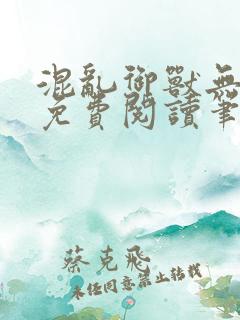 混亂御獸無
免費閱讀筆
蔡克飛
未經同意禁止轉載